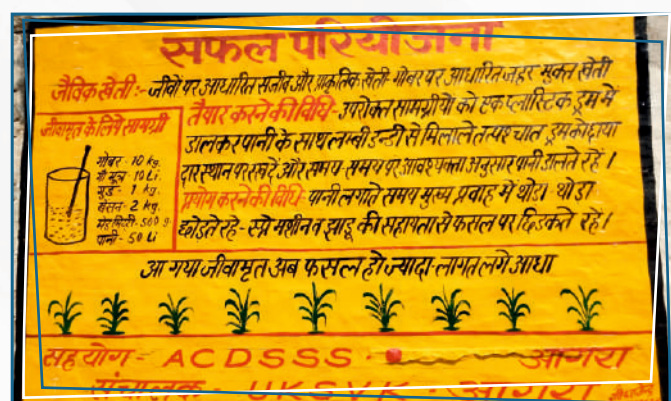 सफल परियोजना
जैविक खेती :- जीवों पर आधारित सजीव और प्राकृतिक खेती-गोबर पर आधारित जहर मुक्त खेती
जीवामृत के लिये सामग्री
गोबर - 10 kg.
गौ मूत्र - 10 Li.
गुड़ - 1 kg.
बेसन - 2 kg.
मेड़ मिट्टी - 500 g.
पानी - 50 Li
तैयार करने की विधि - उपरोक्त सामग्रीयों को एक प्लास्टिक ड्रम में
डालकर पानी के साथ लम्बी डन्डी से मिलाले तत्पश्चात ड्रम को छाया
दार स्थान पर रखदें और समय-समय पर आवश्यक्ता अनुसार पानी डालते रहें ।
प्रयोग करने की विधि - पानी लगाते समय मुख्य प्रवाह में थोडा थोडा
छोड़ते रहे - स्प्रे मशीन व झाडू की सहायता से फसल पर छिडकते रहें ।
आ गया जीवामृत अब फसल हो ज्यादा - लागत लगे आधा
सहयोग - ACDSSS - आगरा
संचालक - UKSVK - आगरा